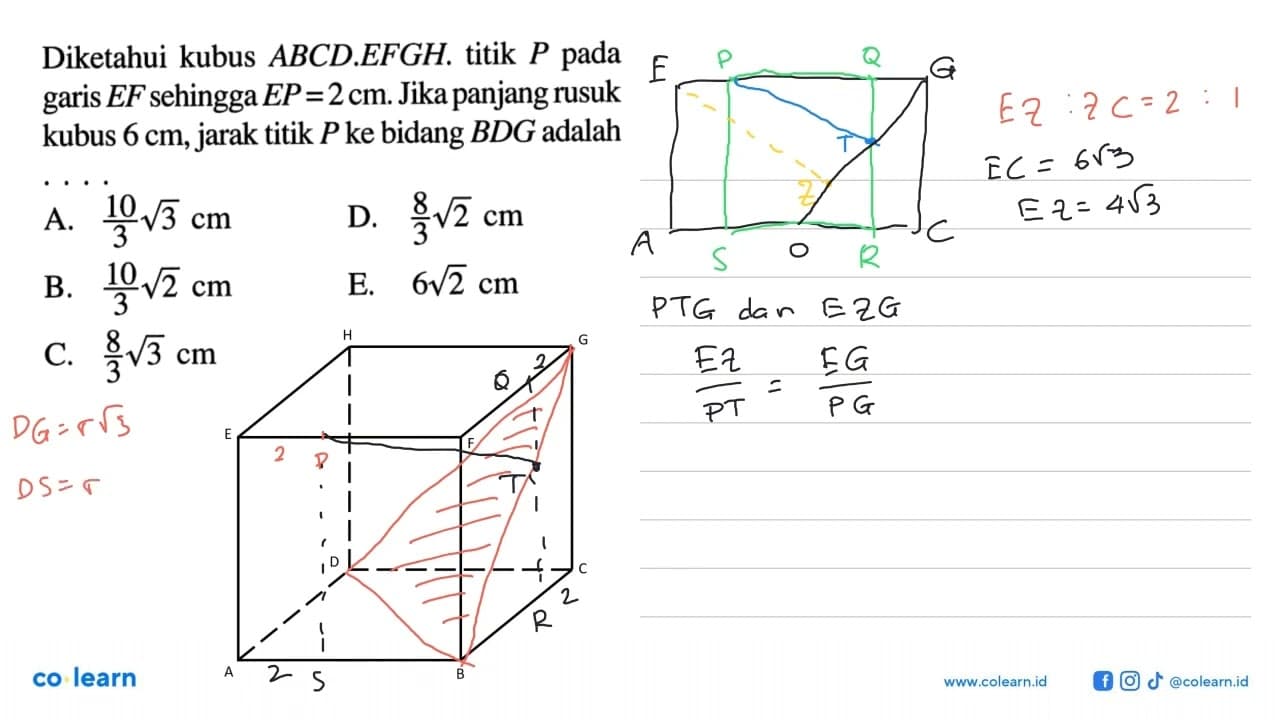 Diketahui kubus ABCD.EFGH. titik P pada
garis EF sehingga EP = 2 cm. Jika panjang rusuk
kubus 6 cm, jarak titik P ke bidang BDG adalah
. . . .
A. 10/3 √3 cm
D. 8/3 √2 cm
B. 10/3 √2 cm
E. 6√2 cm
C. 8/3 √3 cm
DG = r√3
DS = r
H
G
Q
2
E
F
2
P
T
D
C
2
R
A
2
S
B
E
P
Q
G
T
Z
A
S
O
R
C
EZ : ZC = 2 : 1
EC = 6√3
EZ = 4√3
PTG dan EZG
EZ/PT = EG/PG
co learn
www.colearn.id
@colearn.id